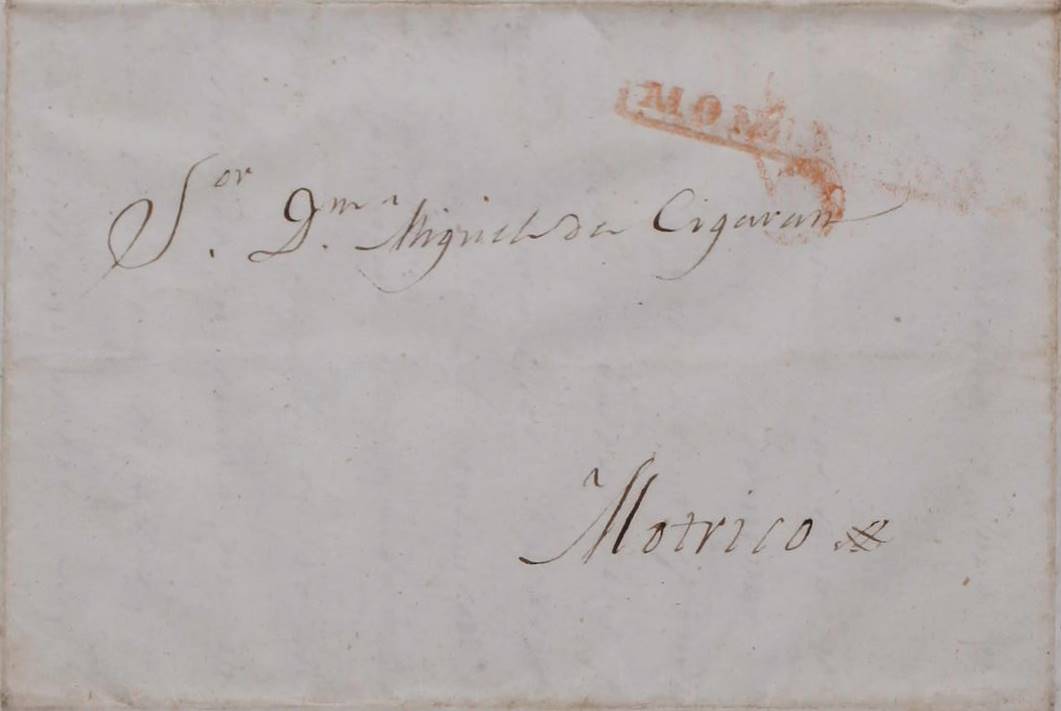 S.or D.n Miguel de Cigaran
Motrico